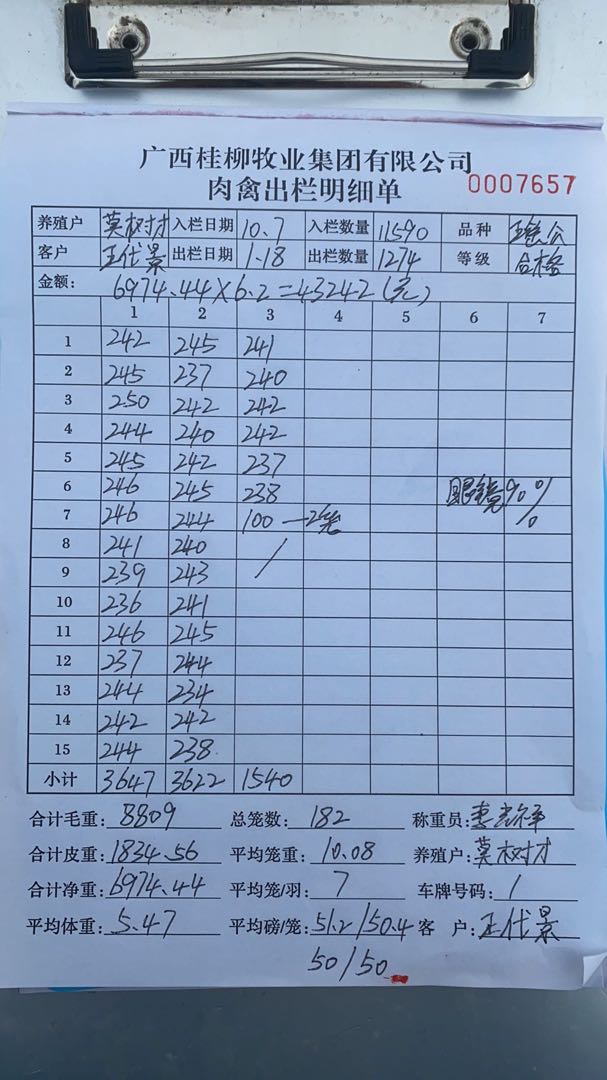 广西桂柳牧业集团有限公司
肉禽出栏明细单 0007657
养殖户 莫树才 入栏日期 10.7 入栏数量 11590 品种
客户 王代景 出栏日期 1.18 出栏数量 1274 等级 合格
金额: 6974.44×6.2=43242(元)
1 2 3 4 5 6 7
1 242 245 241
2 245 237 240
3 250 242 242
4 244 240 242
5 245 242 237
6 246 245 238 眼镜90%
7 246 244 100 —2笼
8 241 240 /
9 239 243
10 236 241
11 246 245
12 237 244
13 244 234
14 242 242
15 244 238
小计 3647 3622 1540
合计毛重: 8809 总笼数: 182 称重员:
合计皮重: 1834.56 平均笼重: 10.08 养殖户: 莫树才
合计净重: 6974.44 平均笼/羽: 7 车牌号码: /
平均体重: 5.47 平均磅/笼: 51.2/50.4 客户: 王代景
50/50